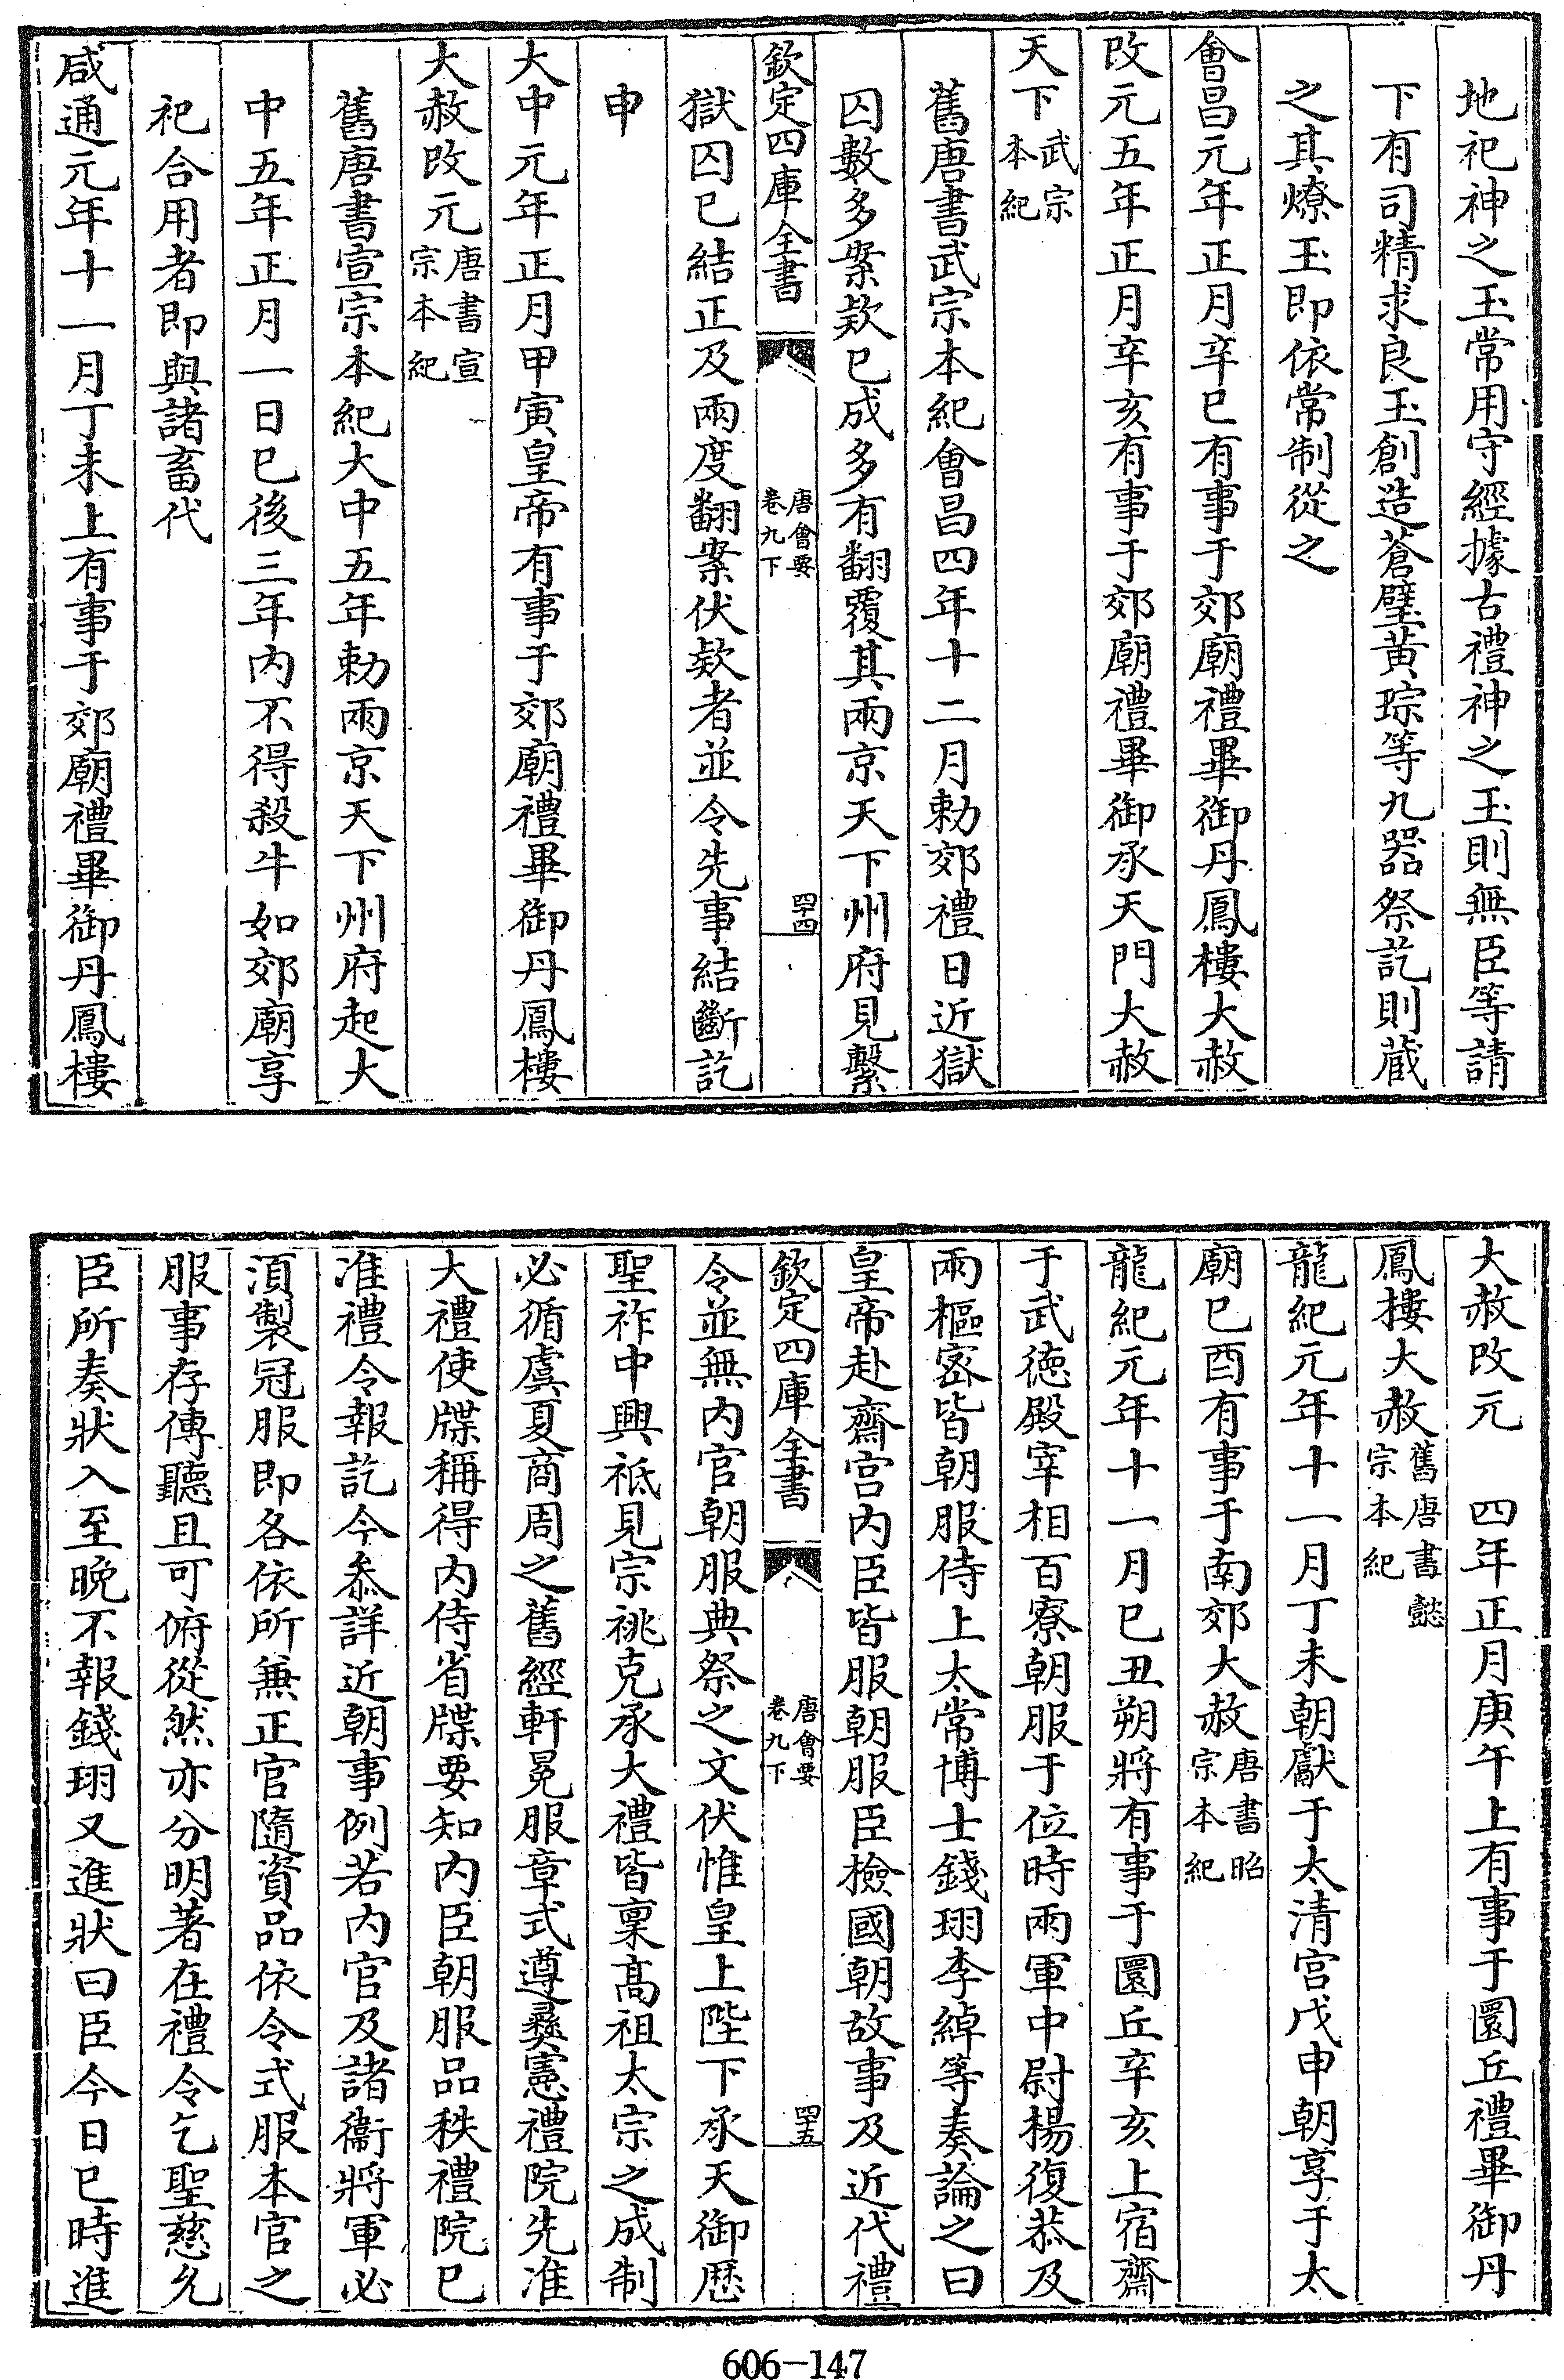 地祀神之玉常用守經據古禮神之玉則無臣等請
下有司精求良玉創造蒼璧黃琮等九器祭訖則藏
之其燎玉即依常制從之
會昌元年正月辛巳有事于郊廟禮畢御丹鳳樓大赦
改元五年正月辛亥有事于郊廟禮畢御承天門大赦
天下武宗本紀
舊唐書武宗本紀會昌四年十二月勅郊禮日近獄
囚數多案欵已成多有翻覆其兩京天下州府見繫
欽定四庫全書 唐會要卷九下 四十四
獄囚已結正及兩度翻案伏欵者並令先事結斷訖
申
大中元年正月甲寅皇帝有事于郊廟禮畢御丹鳳樓
大赦改元唐書宣宗本紀
舊唐書宣宗本紀大中五年勅兩京天下州府起大
中五年正月一日已後三年内不得殺牛如郊廟享
祀合用者即與諸畜代
咸通元年十一月丁未上有事于郊廟禮畢御丹鳳樓
大赦改元 四年正月庚午上有事于圜丘禮畢御丹
鳳樓大赦舊唐書懿宗本紀
龍紀元年十一月丁未朝獻于太清宫戊申朝享于太
廟已酉有事于南郊大赦唐書昭宗本紀
龍紀元年十一月已丑朔將有事于圜丘辛亥上宿齋
于武徳殿宰相百寮朝服于位時兩軍中尉楊復恭及
兩樞密皆朝服侍上太常博士錢珝李綽等奏論之曰
皇帝赴齋宫内臣皆服朝服臣檢國朝故事及近代禮
欽定四庫全書 唐會要卷九下 四十五
令並無内官朝服典祭之文伏惟皇上陛下承天御歴
聖祚中興祗見宗祧克承大禮皆稟髙祖太宗之成制
必循虞夏商周之舊經軒冕服章式遵彞憲禮院先准
大禮使牒稱得内侍省牒要知内臣朝服品秩禮院已
准禮令報訖今叅詳近朝事例若内官及諸衞將軍必
湏製冠服即各依所兼正官隨資品依令式服本官之
服事存傳聽且可俯從然亦分明著在禮令乞聖慈允
臣所奏狀入至晚不報錢珝又進狀曰臣今日已時進
606-147